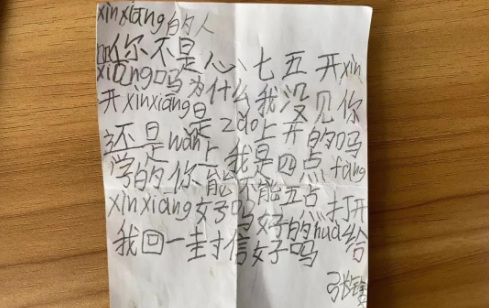 xinxiang的人
你不是心七五开xin
xiang吗为什么我没见你
开xinxiang是zao上开的吗
还是wan上我是四点fang
学的你能不能五点打开
xinxiang好吗好的hua给
我回一封信好吗
张